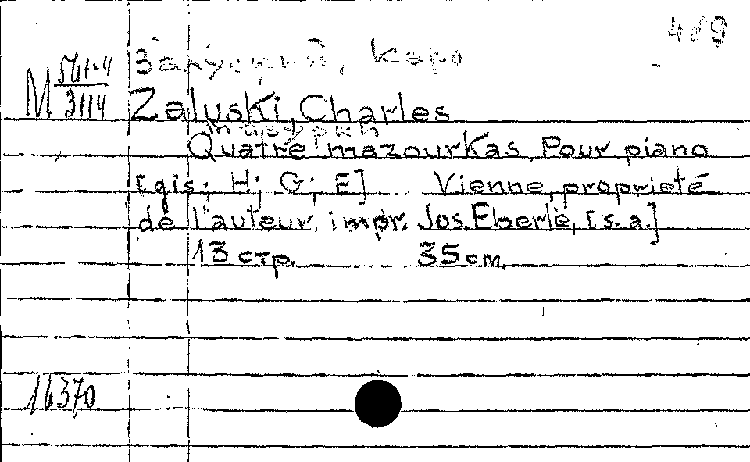 489
М 561-4/3114
Залуский, Каро
Zaluski, Charles
мазурки
Quatre mazourkas. Pour piano
[gis; H; G; E] Vienne, proprieté
de l'auteur, impr. Jos. Eberle, [s.a.]
13 стр. 35 см.
16370